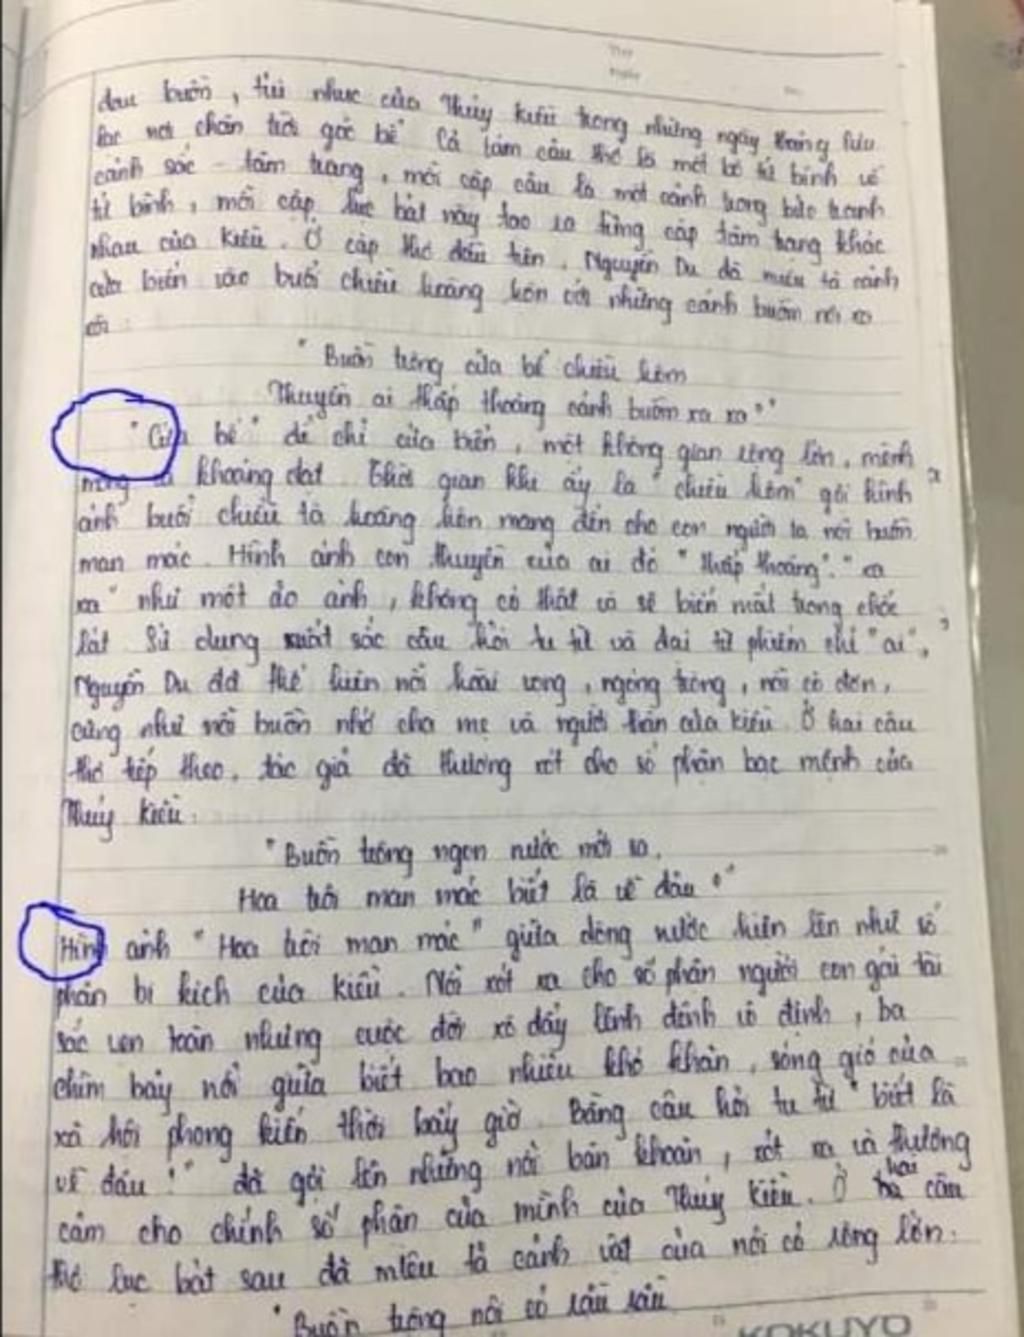 đau buồn, tủi nhục của Thúy Kiều trong những ngày tháng lưu
lạc nơi chân trời góc bể. Cả tám câu thơ là một bộ tứ bình về
cảnh sắc - tâm trạng, mỗi cặp câu là một cảnh trong bức tranh
tứ bình, mỗi cặp lục bát này tạo ra từng cặp tâm trạng khác
nhau của Kiều. Ở cặp thơ đầu tiên, Nguyễn Du đã miêu tả cảnh
cửa biển vào buổi chiều hoàng hôn với những cánh buồm nơi xa
xôi:
"Buồn trông cửa bể chiều hôm
Thuyền ai thấp thoáng cánh buồm xa xa?"
"Cửa bể" để chỉ cửa biển, một không gian rộng lớn, mênh
mông và khoáng đạt. Thời gian khi ấy là "chiều hôm" gợi hình
ảnh buổi chiều tà hoàng hôn mang đến cho con người ta nỗi buồn
man mác. Hình ảnh con thuyền của ai đó "thấp thoáng". "xa
xa" như một ảo ảnh, không có thật và sẽ biến mất trong chốc
lát. Sử dụng xuất sắc câu hỏi tu từ và đại từ phiếm chỉ "ai",
Nguyễn Du đã thể hiện nỗi hoài vọng, ngóng trông, nỗi cô đơn,
cũng như nỗi buồn nhớ cha mẹ và người thân của Kiều. Ở hai câu
thơ tiếp theo, tác giả đã thương xót cho số phận bạc mệnh của
Thúy Kiều:
"Buồn trông ngọn nước mới sa,
Hoa trôi man mác biết là về đâu?"
Hình ảnh "Hoa trôi man mác" giữa dòng nước hiện lên như số
phận bi kịch của Kiều. Nỗi xót xa cho số phận người con gái tài
sắc vẹn toàn nhưng cuộc đời xô đẩy lênh đênh vô định, ba
chìm bảy nổi giữa biết bao nhiêu khó khăn, sóng gió của
xã hội phong kiến thời bấy giờ. Bằng câu hỏi tu từ "biết là
về đâu?" đã gợi lên những nỗi băn khoăn, xót xa và thương
cảm cho chính số phận của mình của Thúy Kiều. Ở hai câu
thơ lục bát sau đã miêu tả cảnh vật của nội cỏ rộng lớn:
"Buồn trông nội cỏ rầu rầu
KOKUYO